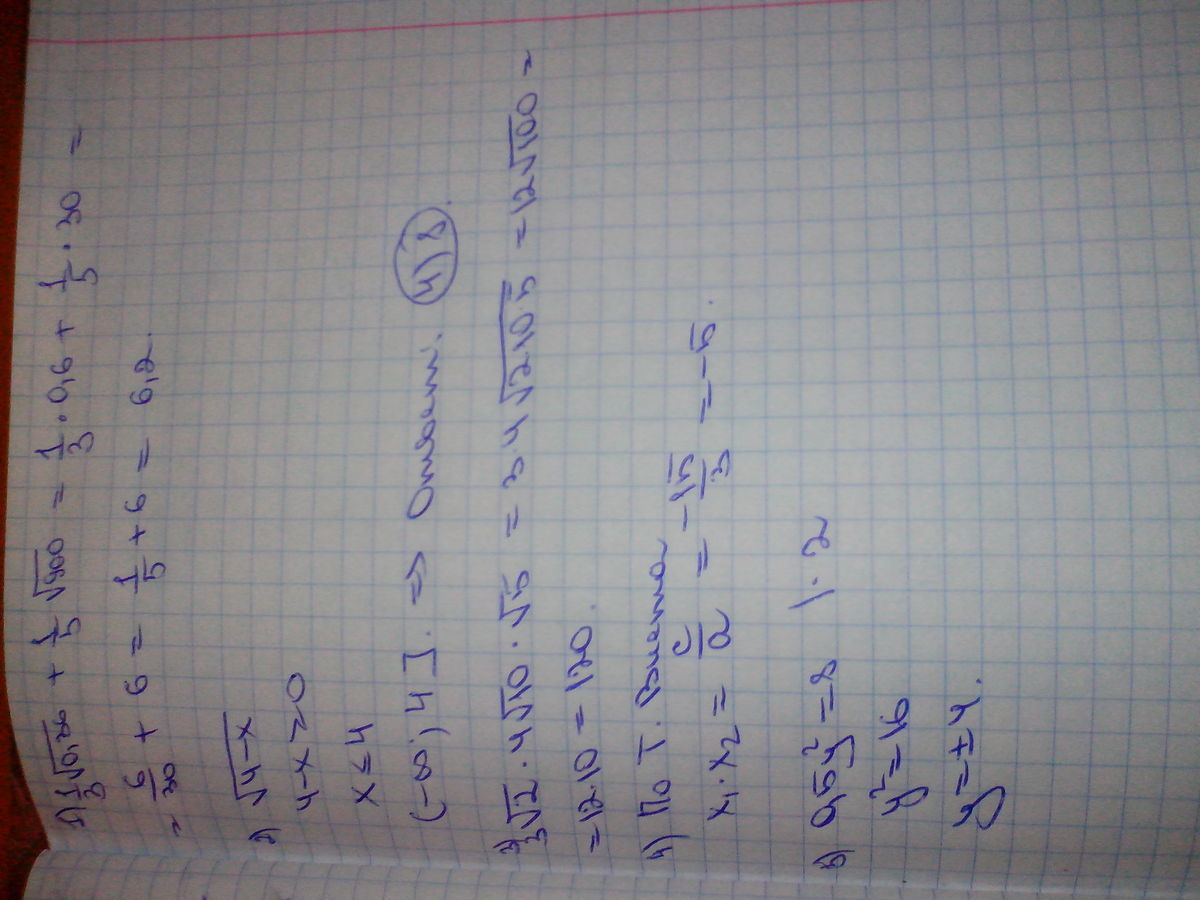 1) 1/3 √0,36 + 1/5 √900 = 1/3 · 0,6 + 1/5 · 30 =
= 6/30 + 6 = 1/5 + 6 = 6,2.
2) √4-x
4-x ≥ 0
x ≤ 4
(-∞; 4]. => Ответ: 4) 8.
3) 3√2 · 4√10 · √5 = 3·4 √2·10·5 = 12√100 =
= 12·10 = 120.
4) По Т. Виета
x₁·x₂ = c/a = -15/3 = -5.
5) 0,5y² = 8 | · 2
y² = 16
y = ±4.